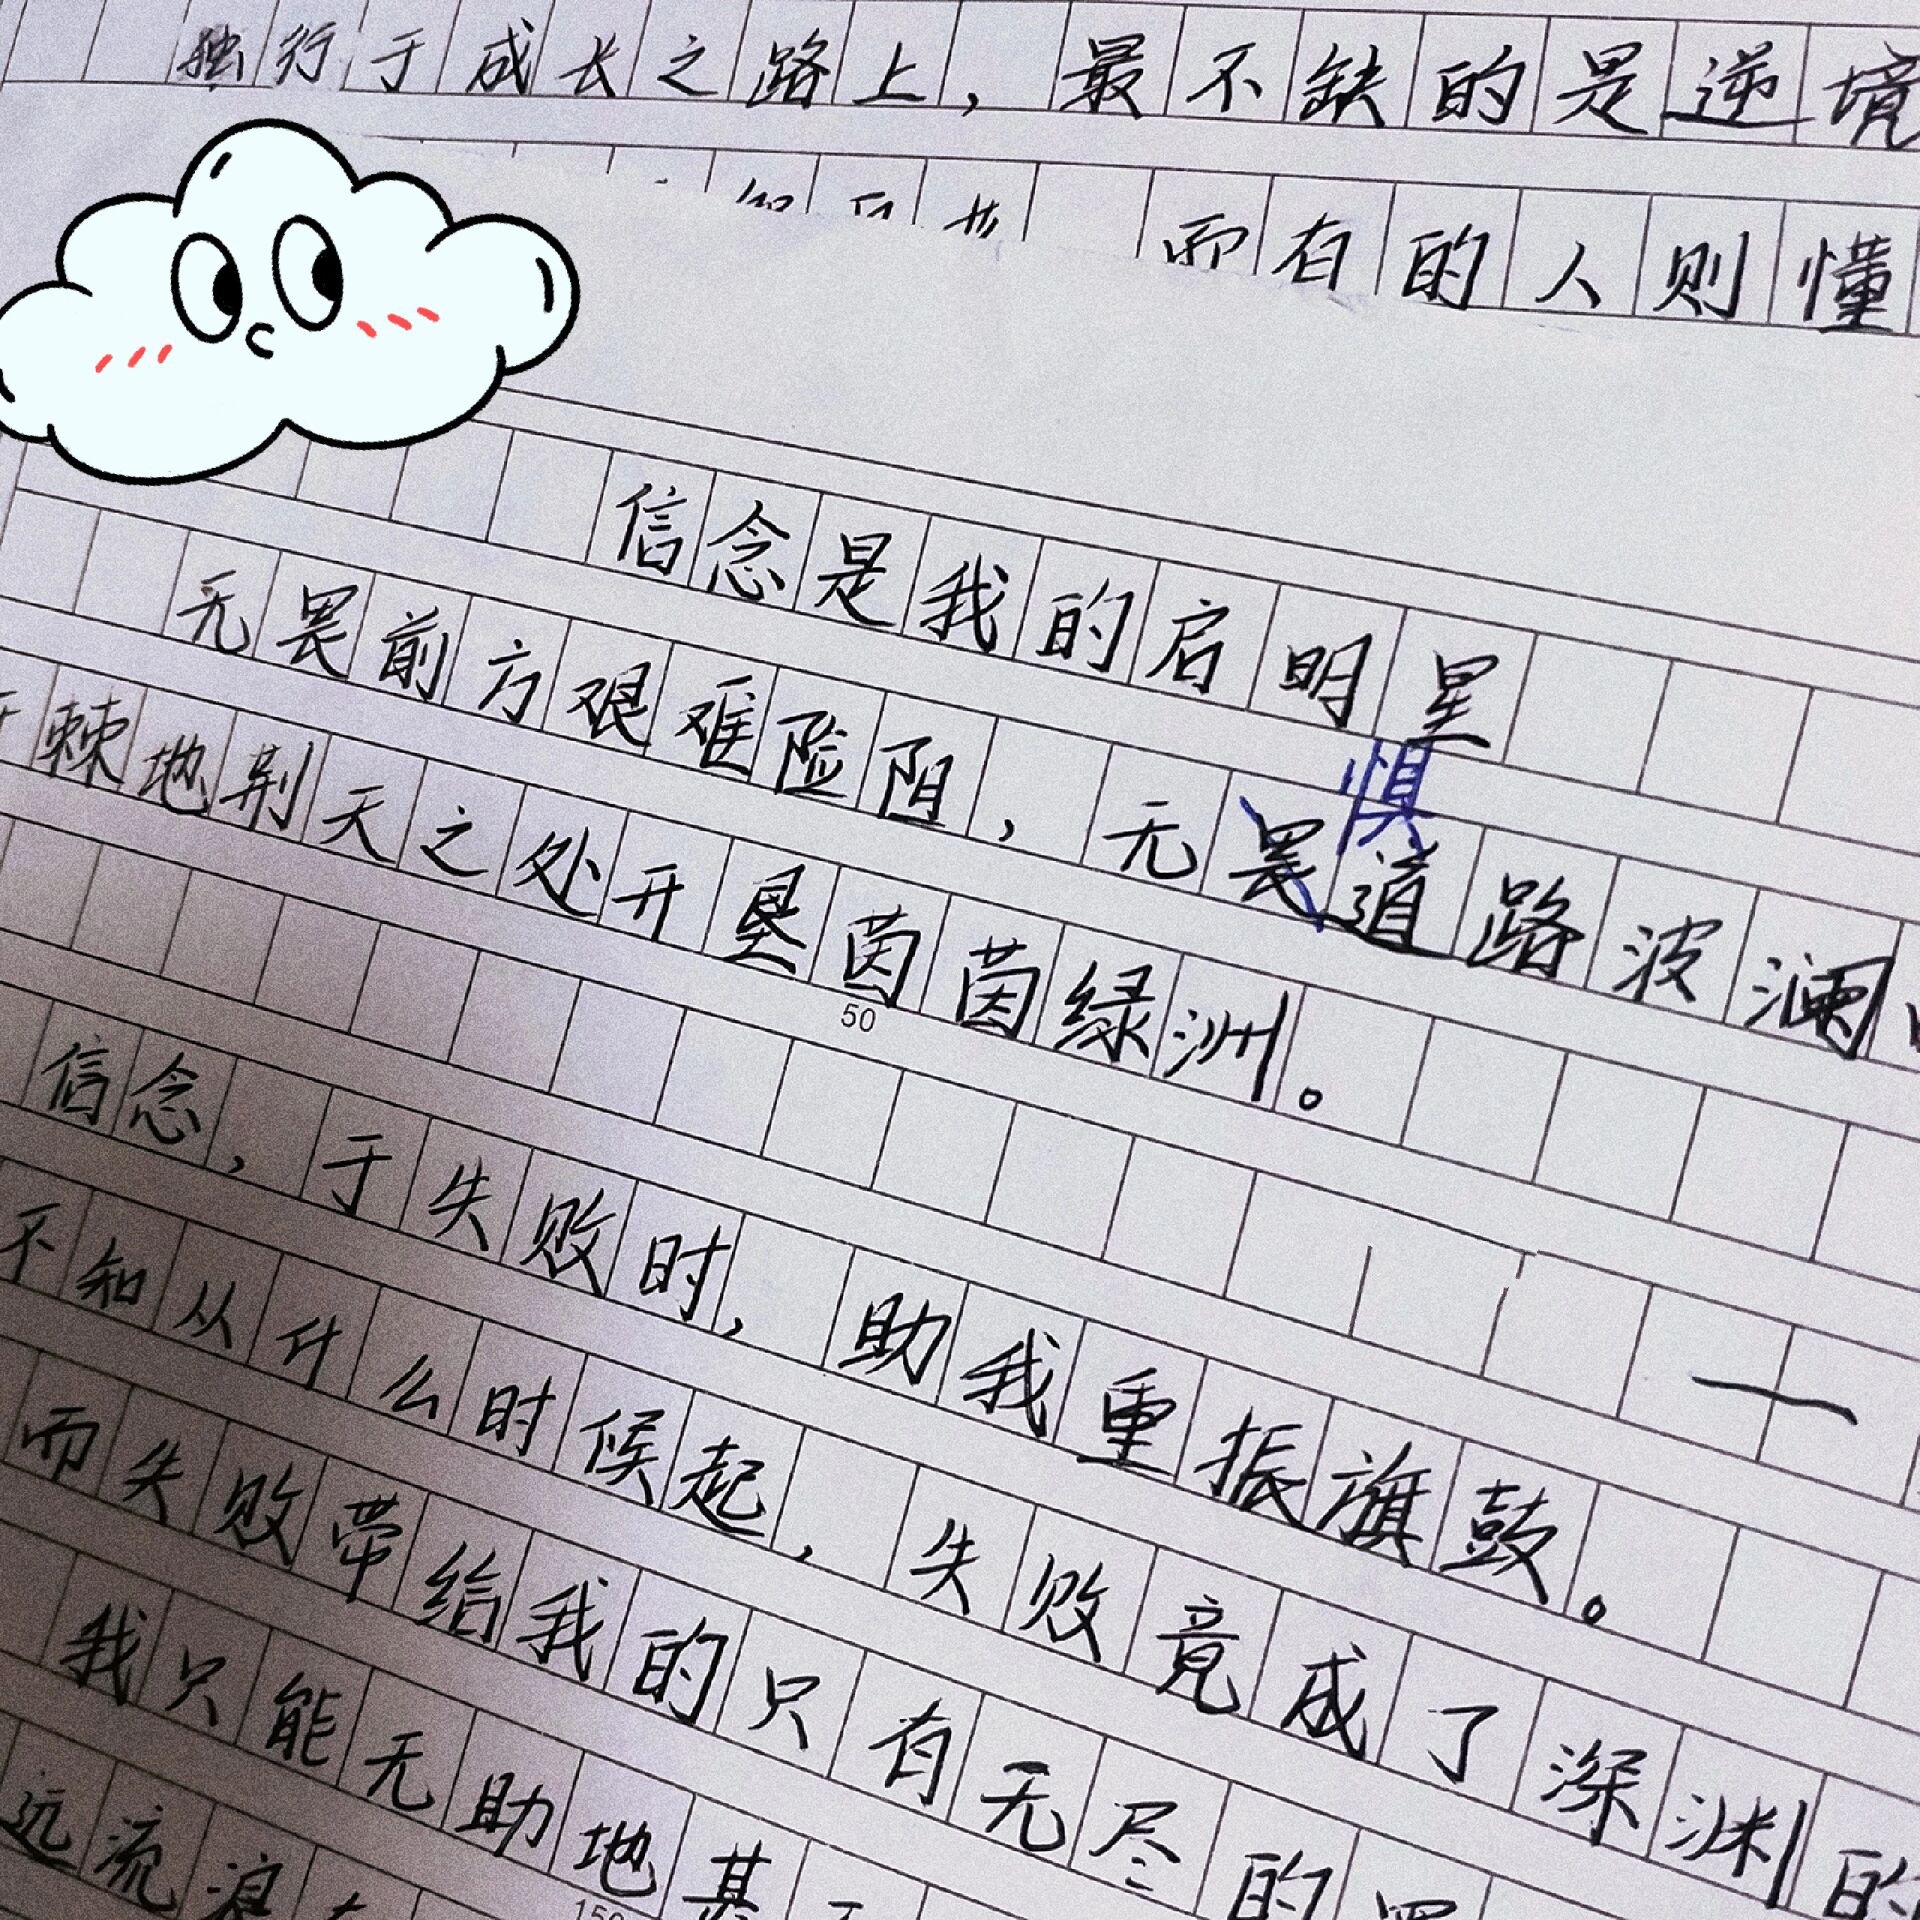 独行于成长之路上，最不缺的是逆境
而有的人则懂
信念是我的启明星
无畏前方艰难险阻，无惧道路波澜
棘地荆天之处开垦茵茵绿洲。
50
一
信念，于失败时，助我重振旗鼓。
不知从什么时候起，失败竟成了深渊的
而失败带给我的只有无尽的
我只能无助地甚
远流浪
150